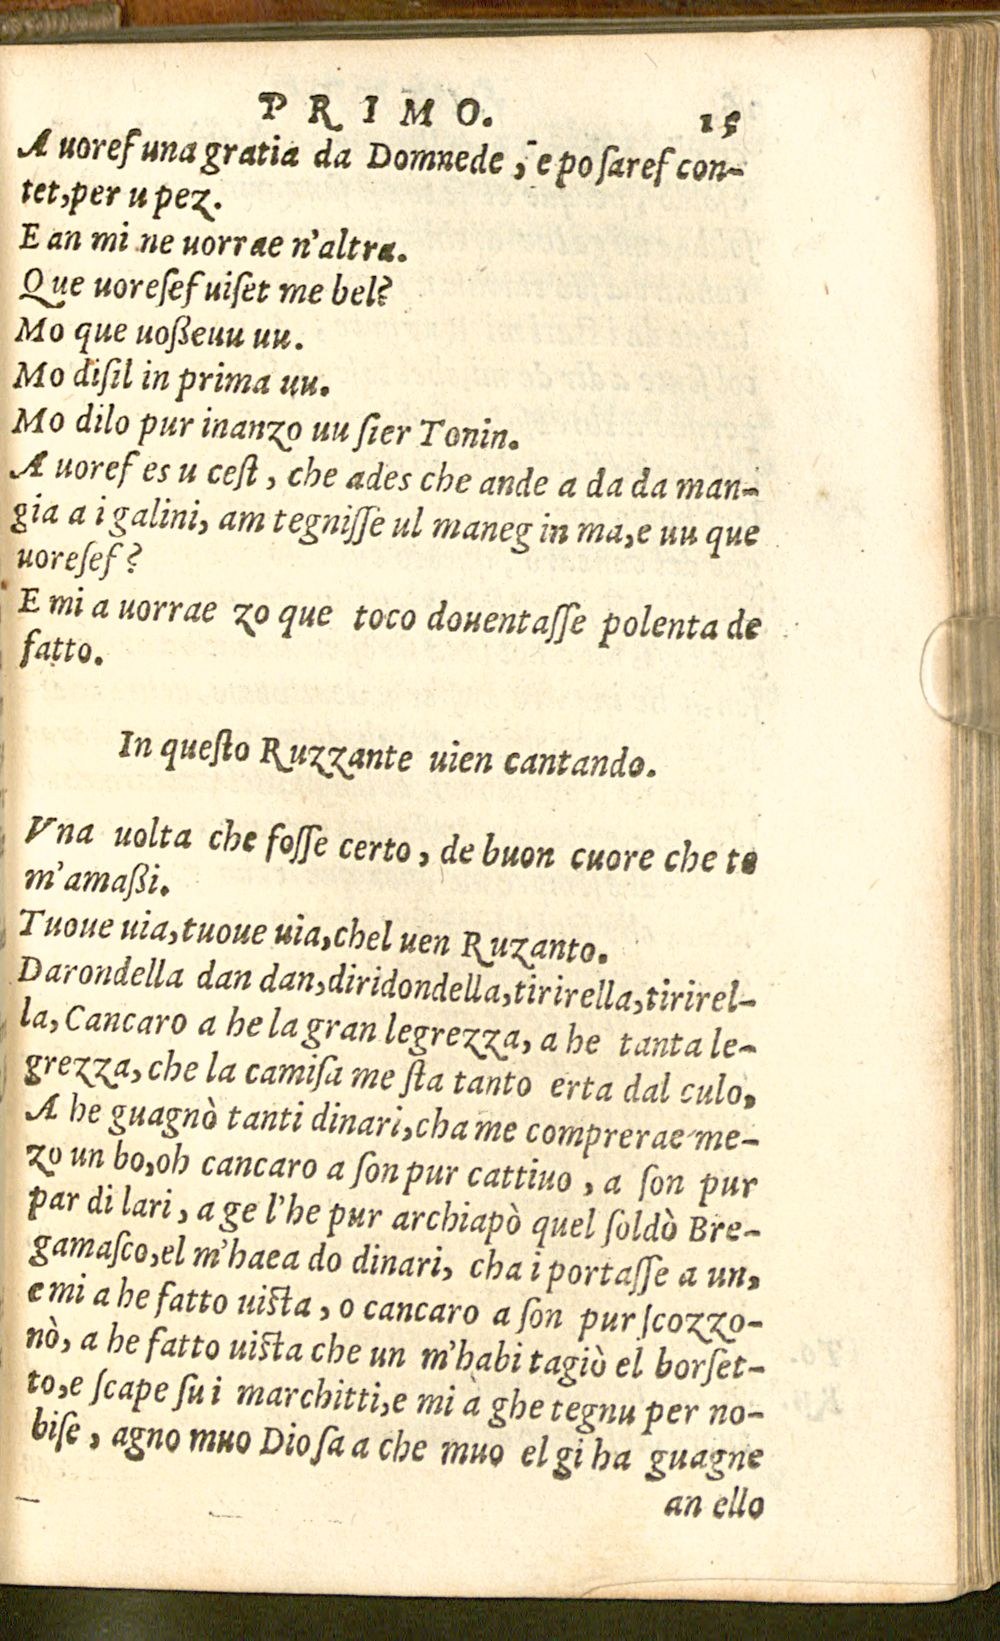 PRIMO. 15
A uoref una gratia da Domnede, e po ſaref con-
tet, per u pez.
E an mi ne uorrae n'altra.
Que uoreſef uiſet me bel?
Mo que uoßeuu uu.
Mo diſil in prima uu.
Mo dilo pur inanzo uu ſier Tonin.
A uoref es u ceſt, che ades che ande a da da man-
gia a i galini, am tegniſſe ul maneg in ma, e uu que
uoreſef?
E mi a uorrae zo que toco douentaſſe polenta de
fatto.
In queſto Ruzzante uien cantando.
Vna uolta che foſſe certo, de buon cuore che to
m'amaßi.
Tuoue uia, tuoue uia, chel uen Ruzanto.
Darondella dan dan, diridondella, tirirella, tirirel-
la, Cancaro a he la gran legrezza, a he tanta le-
grezza, che la camiſa me ſta tanto erta dal culo,
A he guagnò tanti dinari, cha me comprerae me-
zo un bo, oh cancaro a ſon pur cattiuo, a ſon pur
par di lari, a ge l'he pur archiapò quel ſoldò Bre-
gamaſco, el m'haea do dinari, cha i portaſſe a un,
e mi a he fatto uiſta, o cancaro a ſon pur ſcozzo-
nò, a he fatto uiſta che un m'habi tagiò el borſet-
to, e ſcape ſu i marchitti, e mi à ghe tegnu per no-
biſe, agno muo Dio ſa a che muo el gi ha guagne
an ello